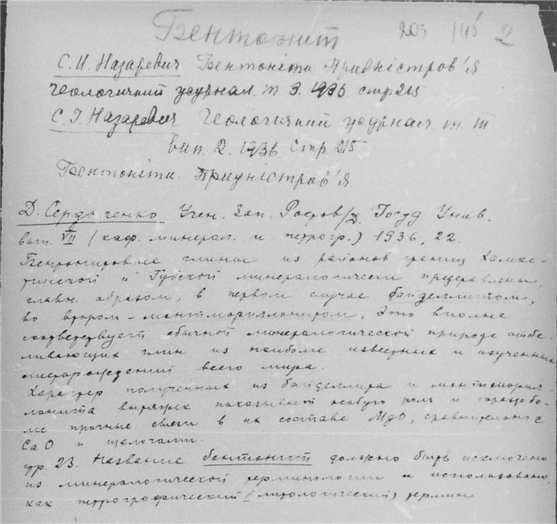 Бентонит
203 145 2
С. И. Назаревич Бентоніти Придністров'я
геологичний журнал. т 3. 1936 стр 215
С. І. Назаревич Геологичний журнал т III
Вип. 2. 1936 стр. 215
Бентоніти Придністров'я.
Д. Сердюченко Учен. Зап. Ростов/Д. Госуд Унив.
вып. VII (каф. минерал. и петрогр.) 1936, 22.
глины из районов
и Губской минералогически представлены
главн. образом, в первом случае байделлитом,
во втором - монтмориллонитом. Это вполне
соответствует обычной минералогической природе отбе-
ливающих глин из наиболее известных и изученных
месторождений всего мира.
Характер полученных из байделлита и монтморил-
лонита вытяжек показывает особую роль и гораздо бо-
лее прочные связи в их составе MgO, сравнительно с
CaO и щелочами.
стр. 23. Название бентонит должно быть исключено
из минералогической терминологии и использовано
как петрографический (литологический) термин